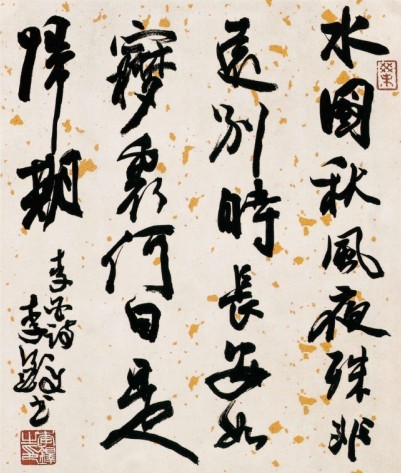 水國秋風夜殊非
遠別時長安如
夢裏何日是
歸期
李白詩
李鐸书
李鐸之印